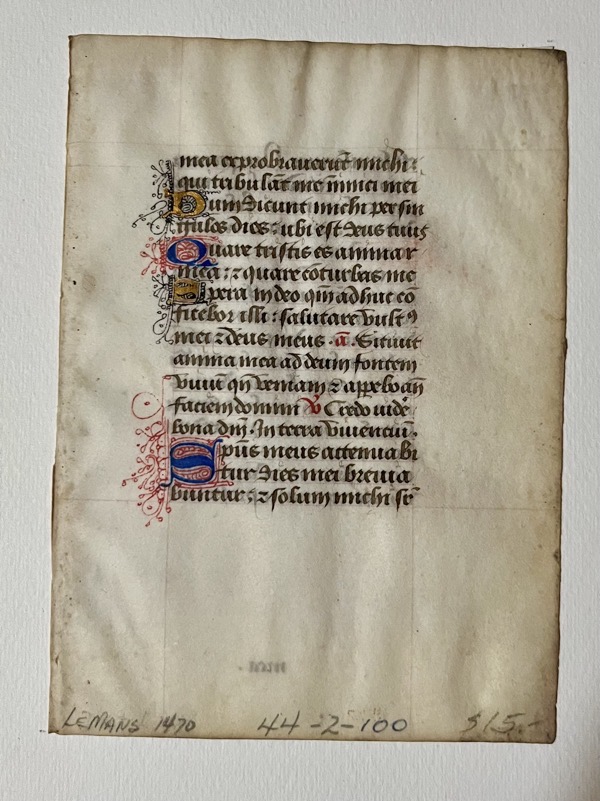 mea exprobraverūt michi
qui tribulāt me īnimici mei
Dum dicunt michi per sin
gulos dies: ubi est deus tuus
Quare tristis es anima
mea: ⁊ quare cōturbas me
Spera in deo qm̄ adhuc cō
fitebor illi: salutare vultꝰ
mei ⁊ deus meus. a. Sitivit
anima mea ad deum fontem
vivū qn̄ veniam ⁊ appebo an̄
faciem domini V Credo vidē
bona dn̄i. In terra viventiū.
Spūs meus attenuabi
tur dies mei brevia
buntur: ⁊ solum michi
LEMANS 1470 44-2-100 $15.-